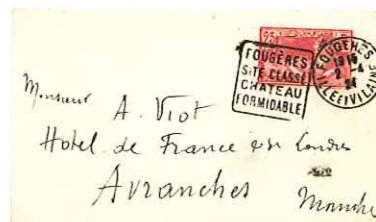 FOUGÈRES
SITE CLASSÉ
CHÂTEAU
FORMIDABLE
FOUGÈRES
ILLE ET VILAINE
Monsieur
A. Viot
Hotel de France & de Londres
Avranches
Manche